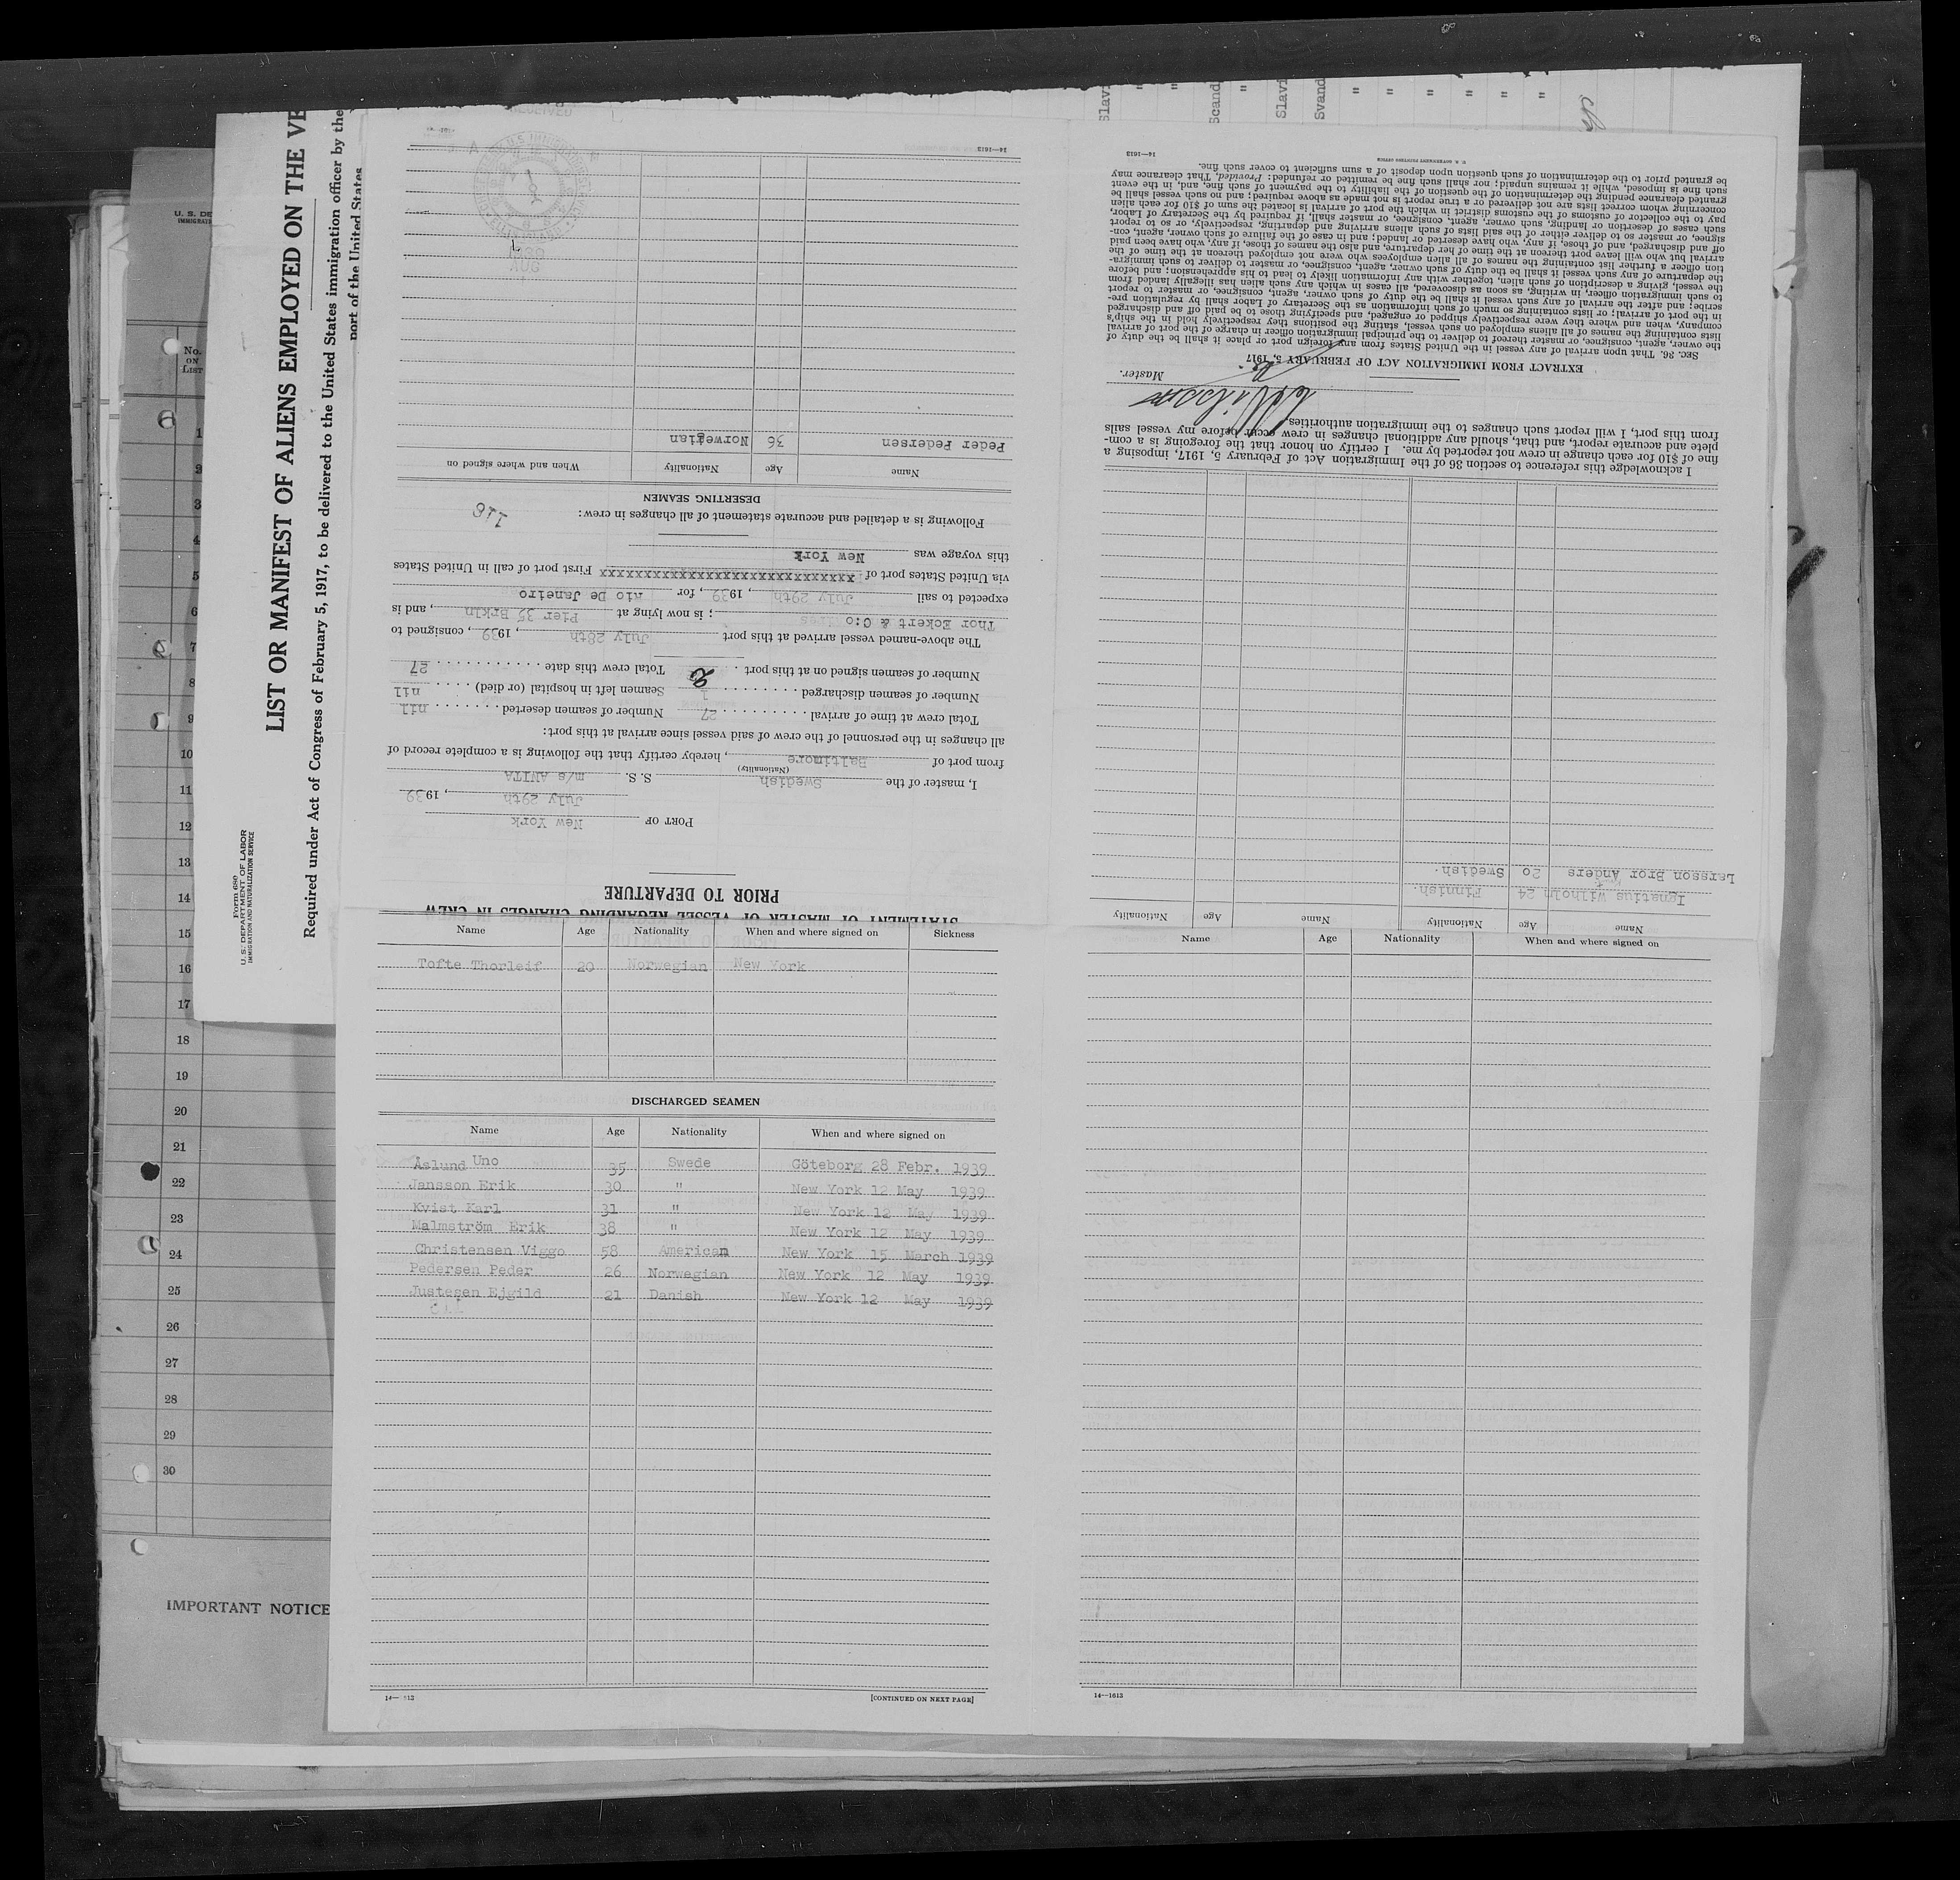 LIST OR MANIFEST OF ALIENS EMPLOYED ON THE VE
Required under Act of Congress of February 5, 1917, to be delivered to the United States immigration officer by the
port of the United States
Form 680
U. S. DEPARTMENT OF LABOR
IMMIGRATION AND NATURALIZATION SERVICE
U. S. DE
IMMIGRATI
No. ON LIST
1
2
3
4
5
6
7
8
9
10
11
12
13
14
15
16
17
18
19
20
21
22
23
24
25
26
27
28
29
30
IMPORTANT NOTICE
Slavi
"
"
Scand
"
Slavi
Svand
"
"
"
"
"
"
STATEMENT OF MASTER OF VESSEL REGARDING CHANGES IN CREW
PRIOR TO DEPARTURE
PORT OF New York
July 29th, 1939
I, master of the Swedish S. S. m/s ANITA
(Nationality)
from port of Baltimore, hereby certify that the following is a complete record of
all changes in the personnel of the crew of said vessel since arrival at this port:
Total crew at time of arrival 27 Number of seamen deserted nil
Number of seamen discharged Seamen left in hospital (or died) nil
Number of seamen signed on at this port 2 Total crew this date 27
The above-named vessel arrived at this port July 28th, 1939, consigned to
Thor Eckert & C:o; is now lying at Pier 35 Brkln, and is
expected to sail July 29th, 1939, for Rio De Janeiro
via United States port of xxxxxxxxxxxxxxxxxxxxxxxxxxxxx First port of call in United States
this voyage was New York
Following is a detailed and accurate statement of all changes in crew:
DESERTING SEAMEN
Name Age Nationality When and where signed on
Peder Pedersen 36 Norwegian
14—1613
Name Age Nationality Name Age Nationality
Ignatius Wilholm 24 Finnish.
Larsson Bror Anders 20 Swedish.
I acknowledge this reference to section 36 of the Immigration Act of February 5, 1917, imposing a
fine of $10 for each change in crew not reported by me. I certify on honor that the foregoing is a com-
plete and accurate report, and that, should any additional changes in crew occur before my vessel sails
from this port, I will report such changes to the immigration authorities.
Master.
EXTRACT FROM IMMIGRATION ACT OF FEBRUARY 5, 1917
SEC. 36. That upon arrival of any vessel in the United States from any foreign port or place it shall be the duty of
the owner, agent, consignee, or master thereof to deliver to the principal immigration officer in charge of the port of arrival
lists containing the names of all aliens employed on such vessel, stating the positions they respectively hold in the ship's
company, when and where they were respectively shipped or engaged, and specifying those to be paid off and discharged
in the port of arrival; or lists containing so much of such information as the Secretary of Labor shall by regulation pre-
scribe; and after the arrival of any such vessel it shall be the duty of such owner, agent, consignee, or master to report
to such immigration officer, in writing, as soon as discovered, all cases in which any such alien has illegally landed from
the vessel, giving a description of such alien, together with any information likely to lead to his apprehension; and before
the departure of any such vessel it shall be the duty of such owner, agent, consignee, or master to deliver to such immigra-
tion officer a further list containing the names of all alien employees who were not employed thereon at the time of the
arrival but who will leave port thereon at the time of her departure, and also the names of those, if any, who have been paid
off and discharged, and of those, if any, who have deserted or landed; and in case of the failure of such owner, agent, con-
signee, or master so to deliver either of the said lists of such aliens arriving and departing, respectively, or so to report
such cases of desertion or landing, such owner, agent, consignee, or master shall, if required by the Secretary of Labor,
pay to the collector of customs of the customs district in which the port of arrival is located the sum of $10 for each alien
concerning whom correct lists are not delivered or a true report is not made as above required; and no such vessel shall be
granted clearance pending the determination of the question of the liability to the payment of such fine, and, in the event
such fine is imposed, while it remains unpaid; nor shall such fine be remitted or refunded: Provided, That clearance may
be granted prior to the determination of such question upon deposit of a sum sufficient to cover such fine.
U. S. GOVERNMENT PRINTING OFFICE
14—1613
Name Age Nationality When and where signed on Sickness
Tofte Thorleif 20 Norwegian New York
DISCHARGED SEAMEN
Name Age Nationality When and where signed on
Åslund Uno 35 Swede Göteborg 28 Febr. 1939
Jansson Erik 30 " New York 12 May 1939
Kvist Karl 31 " New York 12 May 1939
Malmström Erik 38 " New York 12 May 1939
Christensen Viggo 58 American New York 15 March 1939
Pedersen Peder 26 Norwegian New York 12 May 1939
Justesen Ejgild 21 Danish New York 12 May 1939
[CONTINUED ON NEXT PAGE]
Name Age Nationality When and where signed on
14—1613